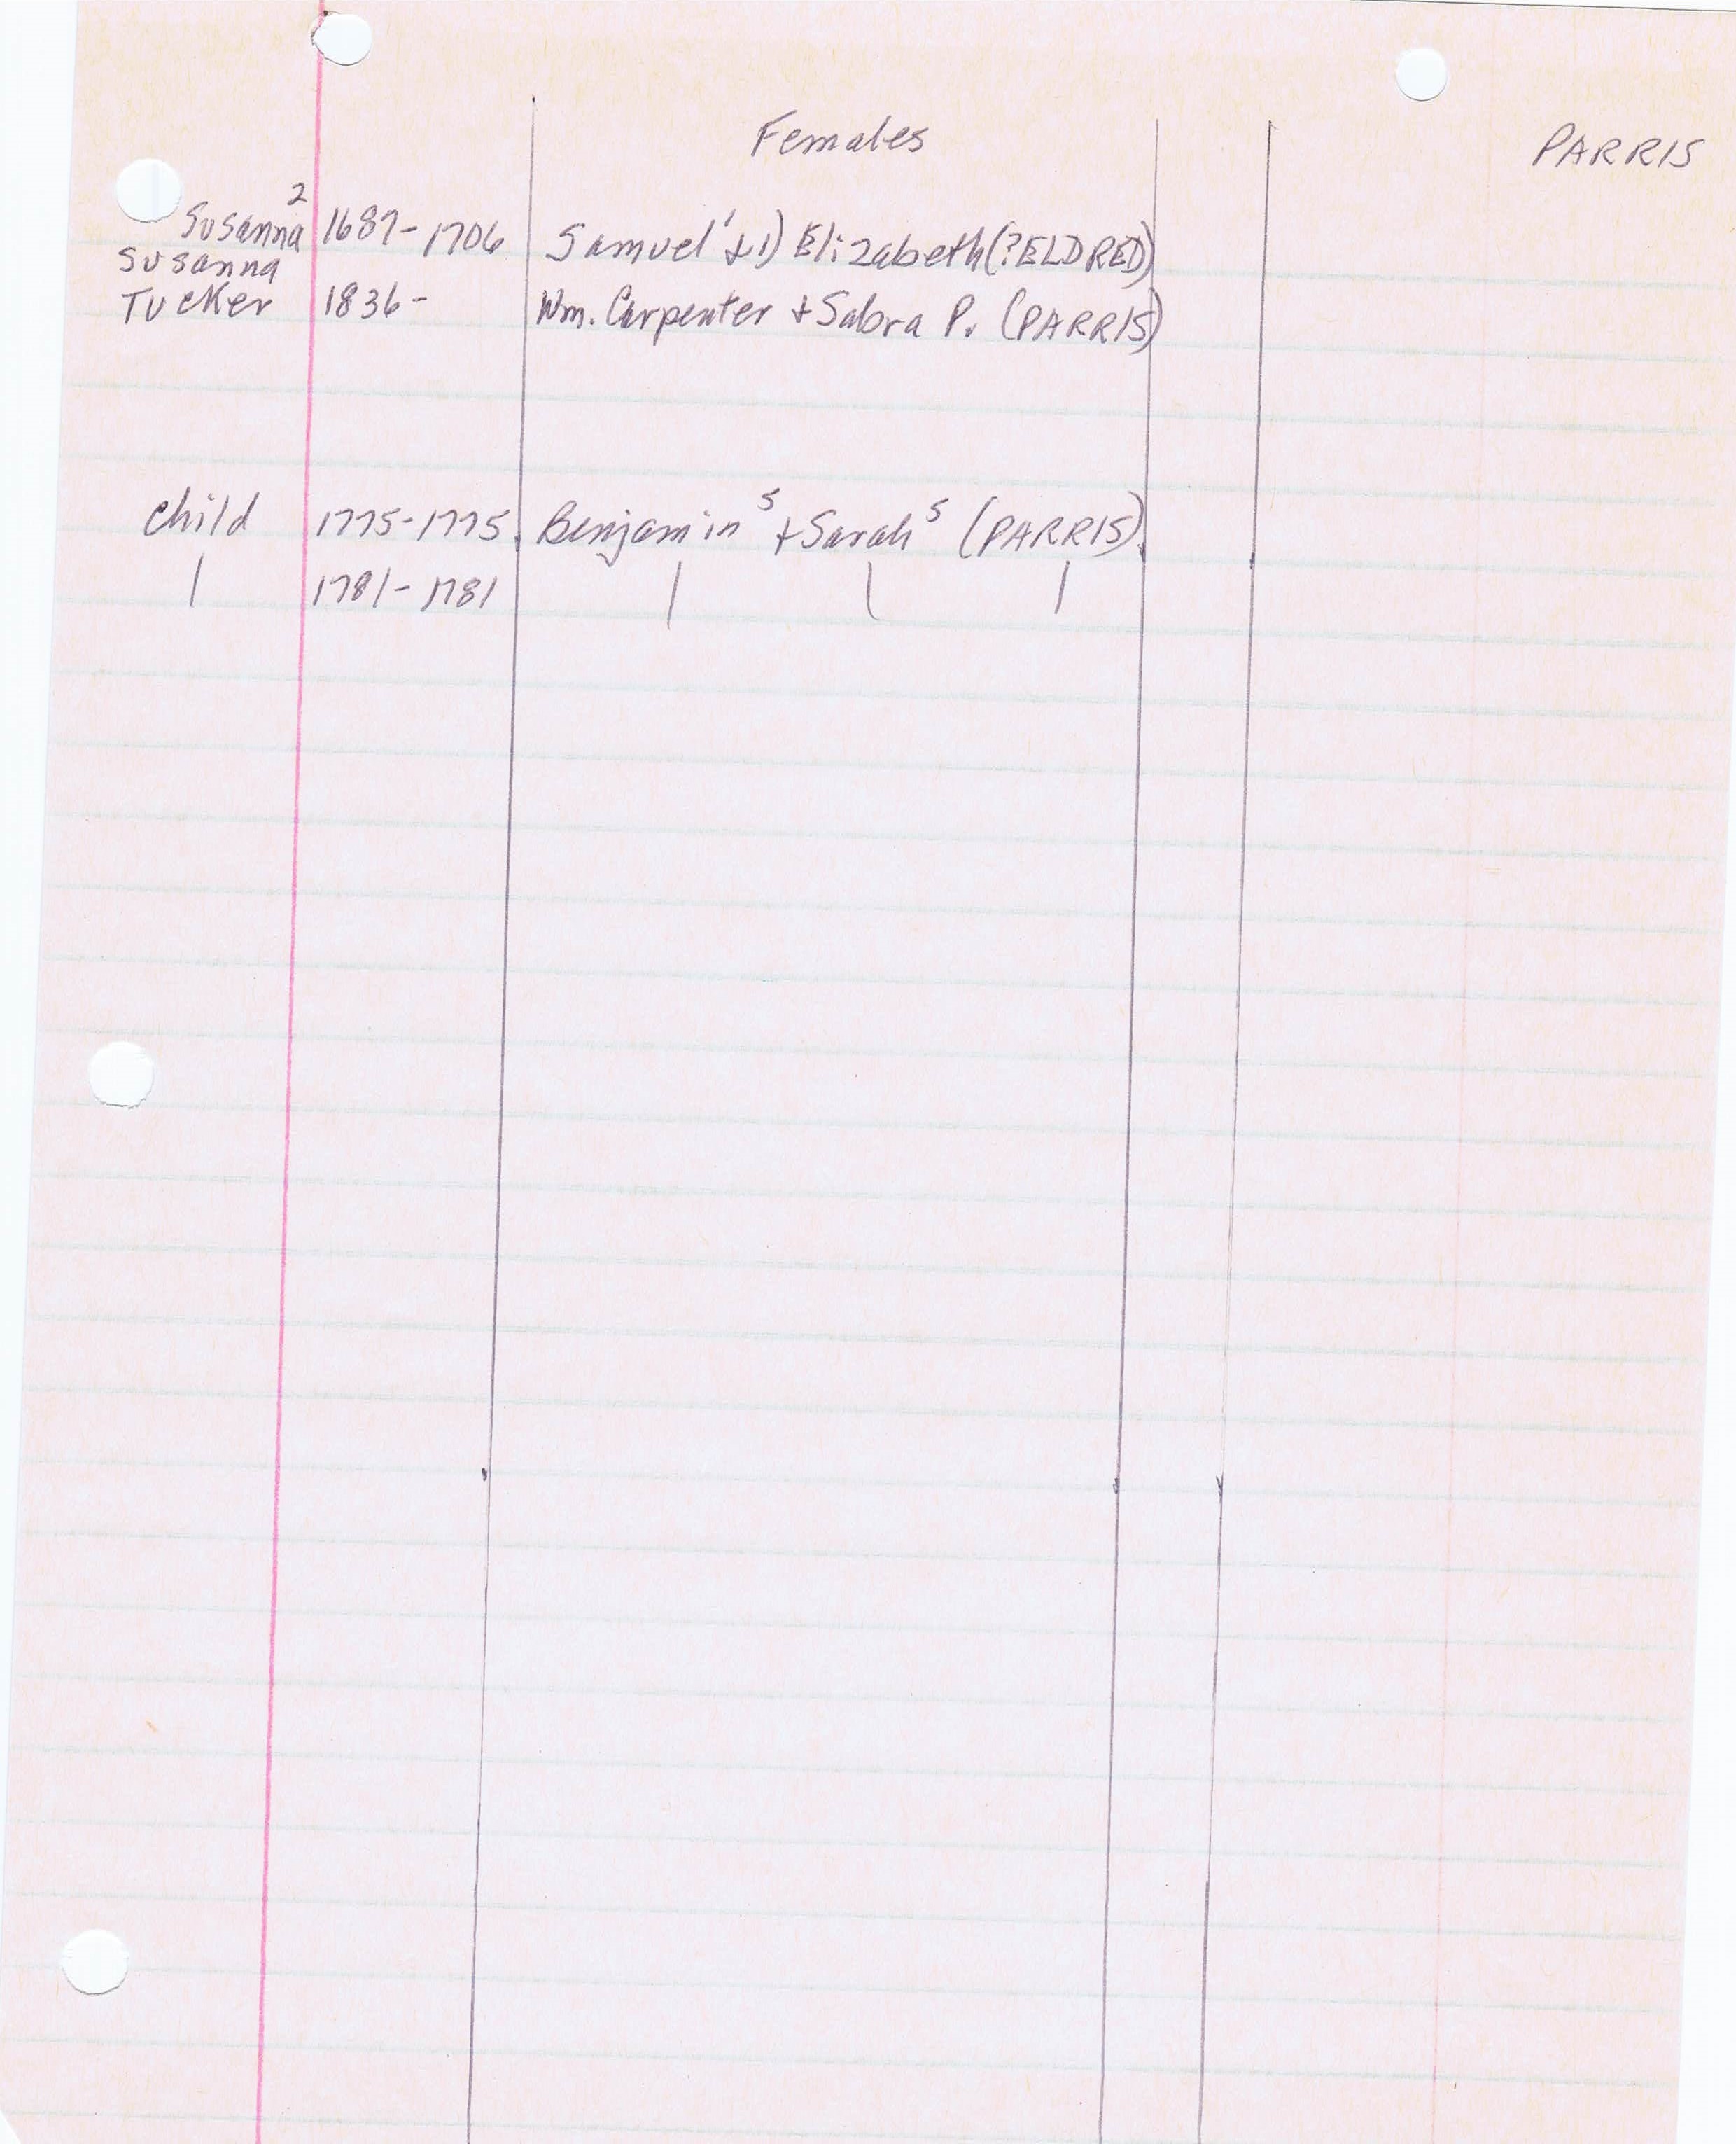 Females PARRIS
Susanna² 1687-1706 Samuel¹ + 1) Elizabeth (?ELDRED)
Susanna
Tucker 1836- Wm. Carpenter + Sabra P. (PARRIS)
Child 1775-1775. Benjamin⁵ + Sarah⁵ (PARRIS).
| 1781-1781 | | |